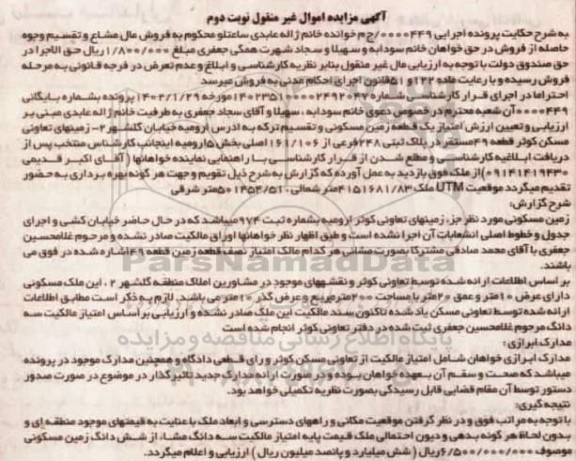 آگهی مزایده اموال غیر منقول نوبت دوم
به شرح حکایت پرونده اجرایی 0000449/ج‌م خوانده خانم ژاله عابدی ساعتلو محکوم به فروش مال مشاع و تقسیم وجوه
حاصله از فروش در حق خواهان خانم سودابه و سهیلا و سجاد شهرت همگی جعفری مبلغ 1/800/000 ریال حق الاجرا در
حق صندوق دولت با توجه به ارزیابی مال غیر منقول بنابر نظریه کارشناسی و ابلاغ و عدم تعرض در فرجه قانونی به مرحله
فروش رسیده و با رعایت ماده 122 و 51 قانون اجرای احکام مدنی به فروش میرسد
احتراما در اجرای قرار کارشناسی شماره مورخه 1403/1/29 پرونده بشماره بایگانی
0000449 آن شعبه محترم در خصوص دعوی خانم سودابه ، سهیلا و آقای سجاد جعفری به طرفیت خانم ژاله عابدی مبنی بر
ارزیابی و تعیین ارزش امتیاز یک قطعه زمین مسکونی و تقسیم ترکه به آدرس ارومیه خیابان گلشهر 2- زمینهای تعاونی
مسکن کوثر قطعه 49 مستقر در پلاک ثبتی 248 فرعی از 161/106 اصلی بخش 5 ارومیه اینجانب کارشناس منتخب پس از
دریافت ابلاغیه کارشناسی و مطلع شدن از قرار کارشناسی با راهنمایی نماینده خواهانها ( آقای اکبر قدیمی
09141419430) از ملک فوق بازدید به عمل آورده که گزارش به شرح ذیل تقویم و جهت هر گونه بهره برداری به حضور
تقدیم میگردد موقعیت UTM ملک 4151681/83 متر شمالی ، 501454/51 متر شرقی
شرح گزارش:
زمین مسکونی مورد نظر جزء زمینهای تعاونی کوثر ارومیه بشماره ثبت 974 میباشد که در حال حاضر خیابان کشی و اجرای
جدول و خطوط اصلی انشعابات آن اجرا نشده است و طبق اظهار نظر خواهانها اوراق مالکیت صادر نشده و مرحوم غلامحسین
جعفری با آقای محمد صادقی مشترکا بصورت مشاعی هر کدام مالک امتیاز نصف قطعه زمین قطعه 49 اشاره شده در فوق می
باشند.
بر اساس اطلاعات ارائه شده توسط تعاونی کوثر و نقشه‌های موجود در مشاورین املاک منطقه گلشهر 2 ، این ملک مسکونی
دارای عرض 10 متر و عمق 20 متر با مساحت 200 مترمربع و عرض گذر 10 متر می باشد. لازم به ذکر است مطابق اطلاعات
ارائه شده توسط تعاونی مسکن یاد شده تاکنون سند مالکیت این ملک صادر نشده و ارزیابی بر اساس امتیاز مالکیت سه
دانگ مرحوم غلامحسین جعفری ثبت شده در دفتر تعاونی کوثر انجام شده است
مدارک ابرازی:
مدارک ابرازی خواهان شامل امتیاز مالکیت از تعاونی مسکن کوثر و رای قطعی دادگاه و همچنین مدارک موجود در پرونده
میباشد که صحت و سقم آن بعهده خواهان بوده و در صورت ارائه مدارک جدید تاثیرگذار در موضوع در صورت صدور
دستور توسط آن مقام قضایی قابل رسیدگی بصورت نظریه تکمیلی خواهد بود.
نتیجه گیری:
با توجه به مراتب فوق و در نظر گرفتن موقعیت مکانی و راههای دسترسی و ابعاد ملک با عنایت به قیمتهای موجود منطقه ای و
بدون لحاظ هر گونه بدهی و دیون احتمالی ملک قیمت پایه امتیاز مالکیت سه دانگ مشاع از شش دانگ زمین مسکونی
موصوف 6/500/000/000 ریال ( شش میلیارد و پانصد میلیون ریال ) ارزیابی و اعلام میگردد.
ParsNamadData
پایگاه اطلاع رسانی مناقصه و مزایده